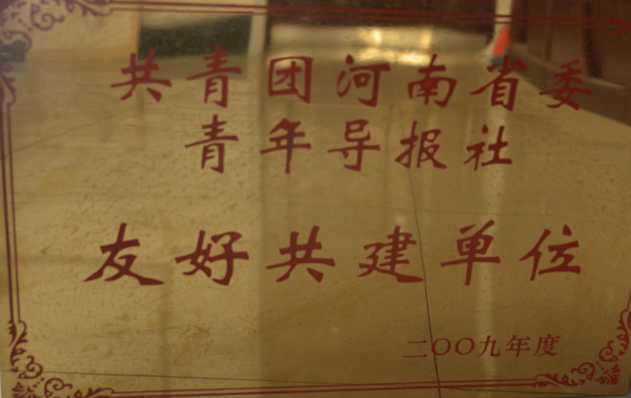 共青团河南省委
青年导报社
友好共建单位
二〇〇九年度